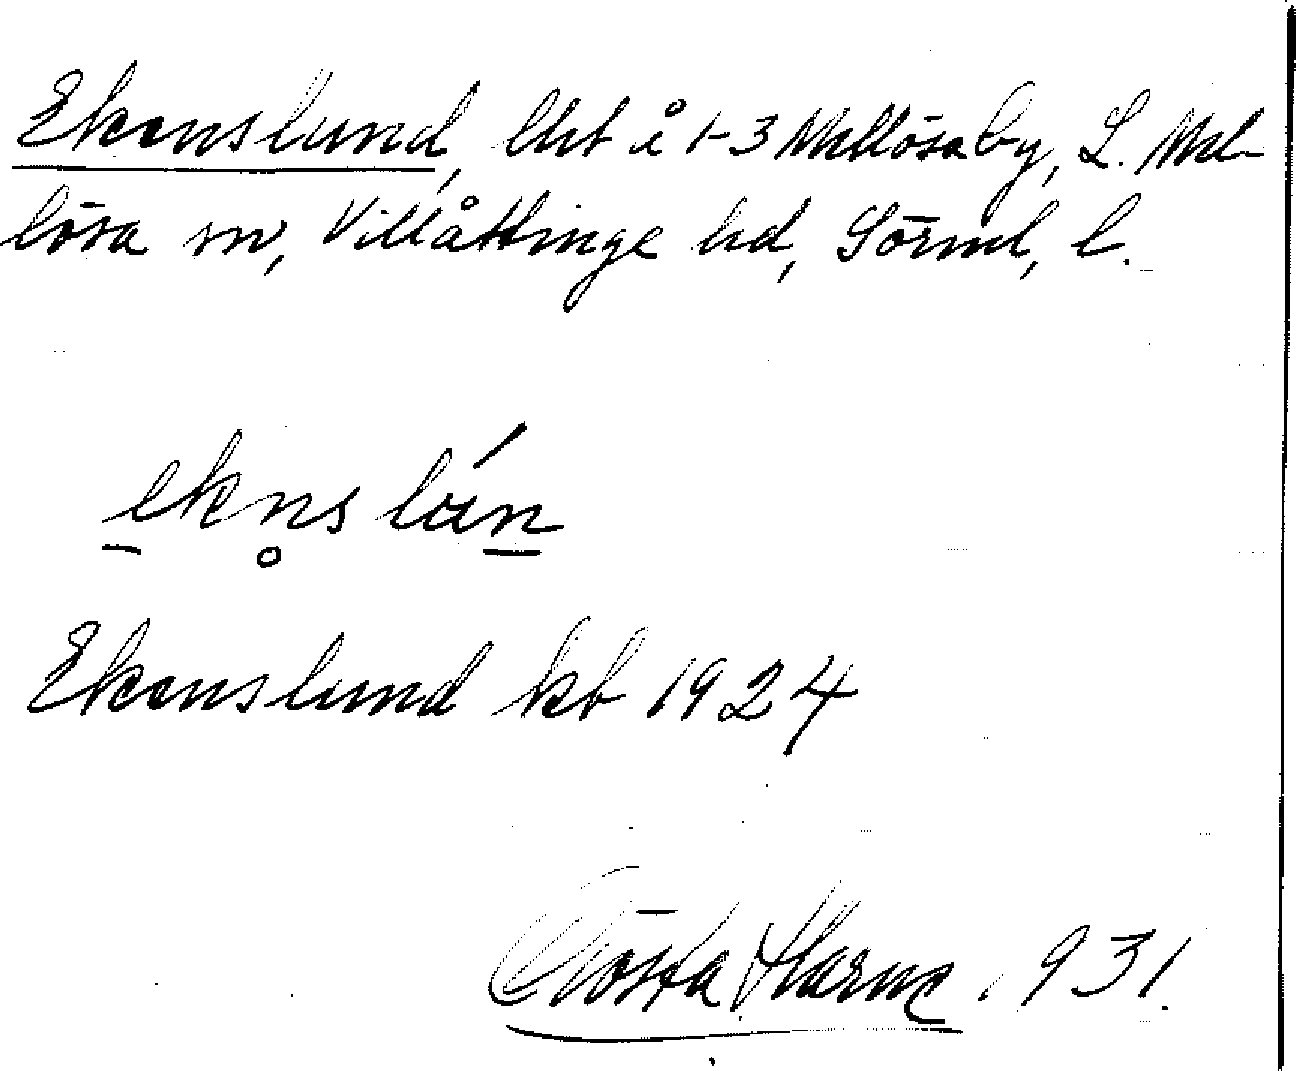 Ekenslund, lht å 1-3 Mellösa by, L. Mel-
lösa sn, Villåttinge hd, Sörml, l.
ekn̥slún
Ekenslund kb 1924
Gösta Harne 1931.